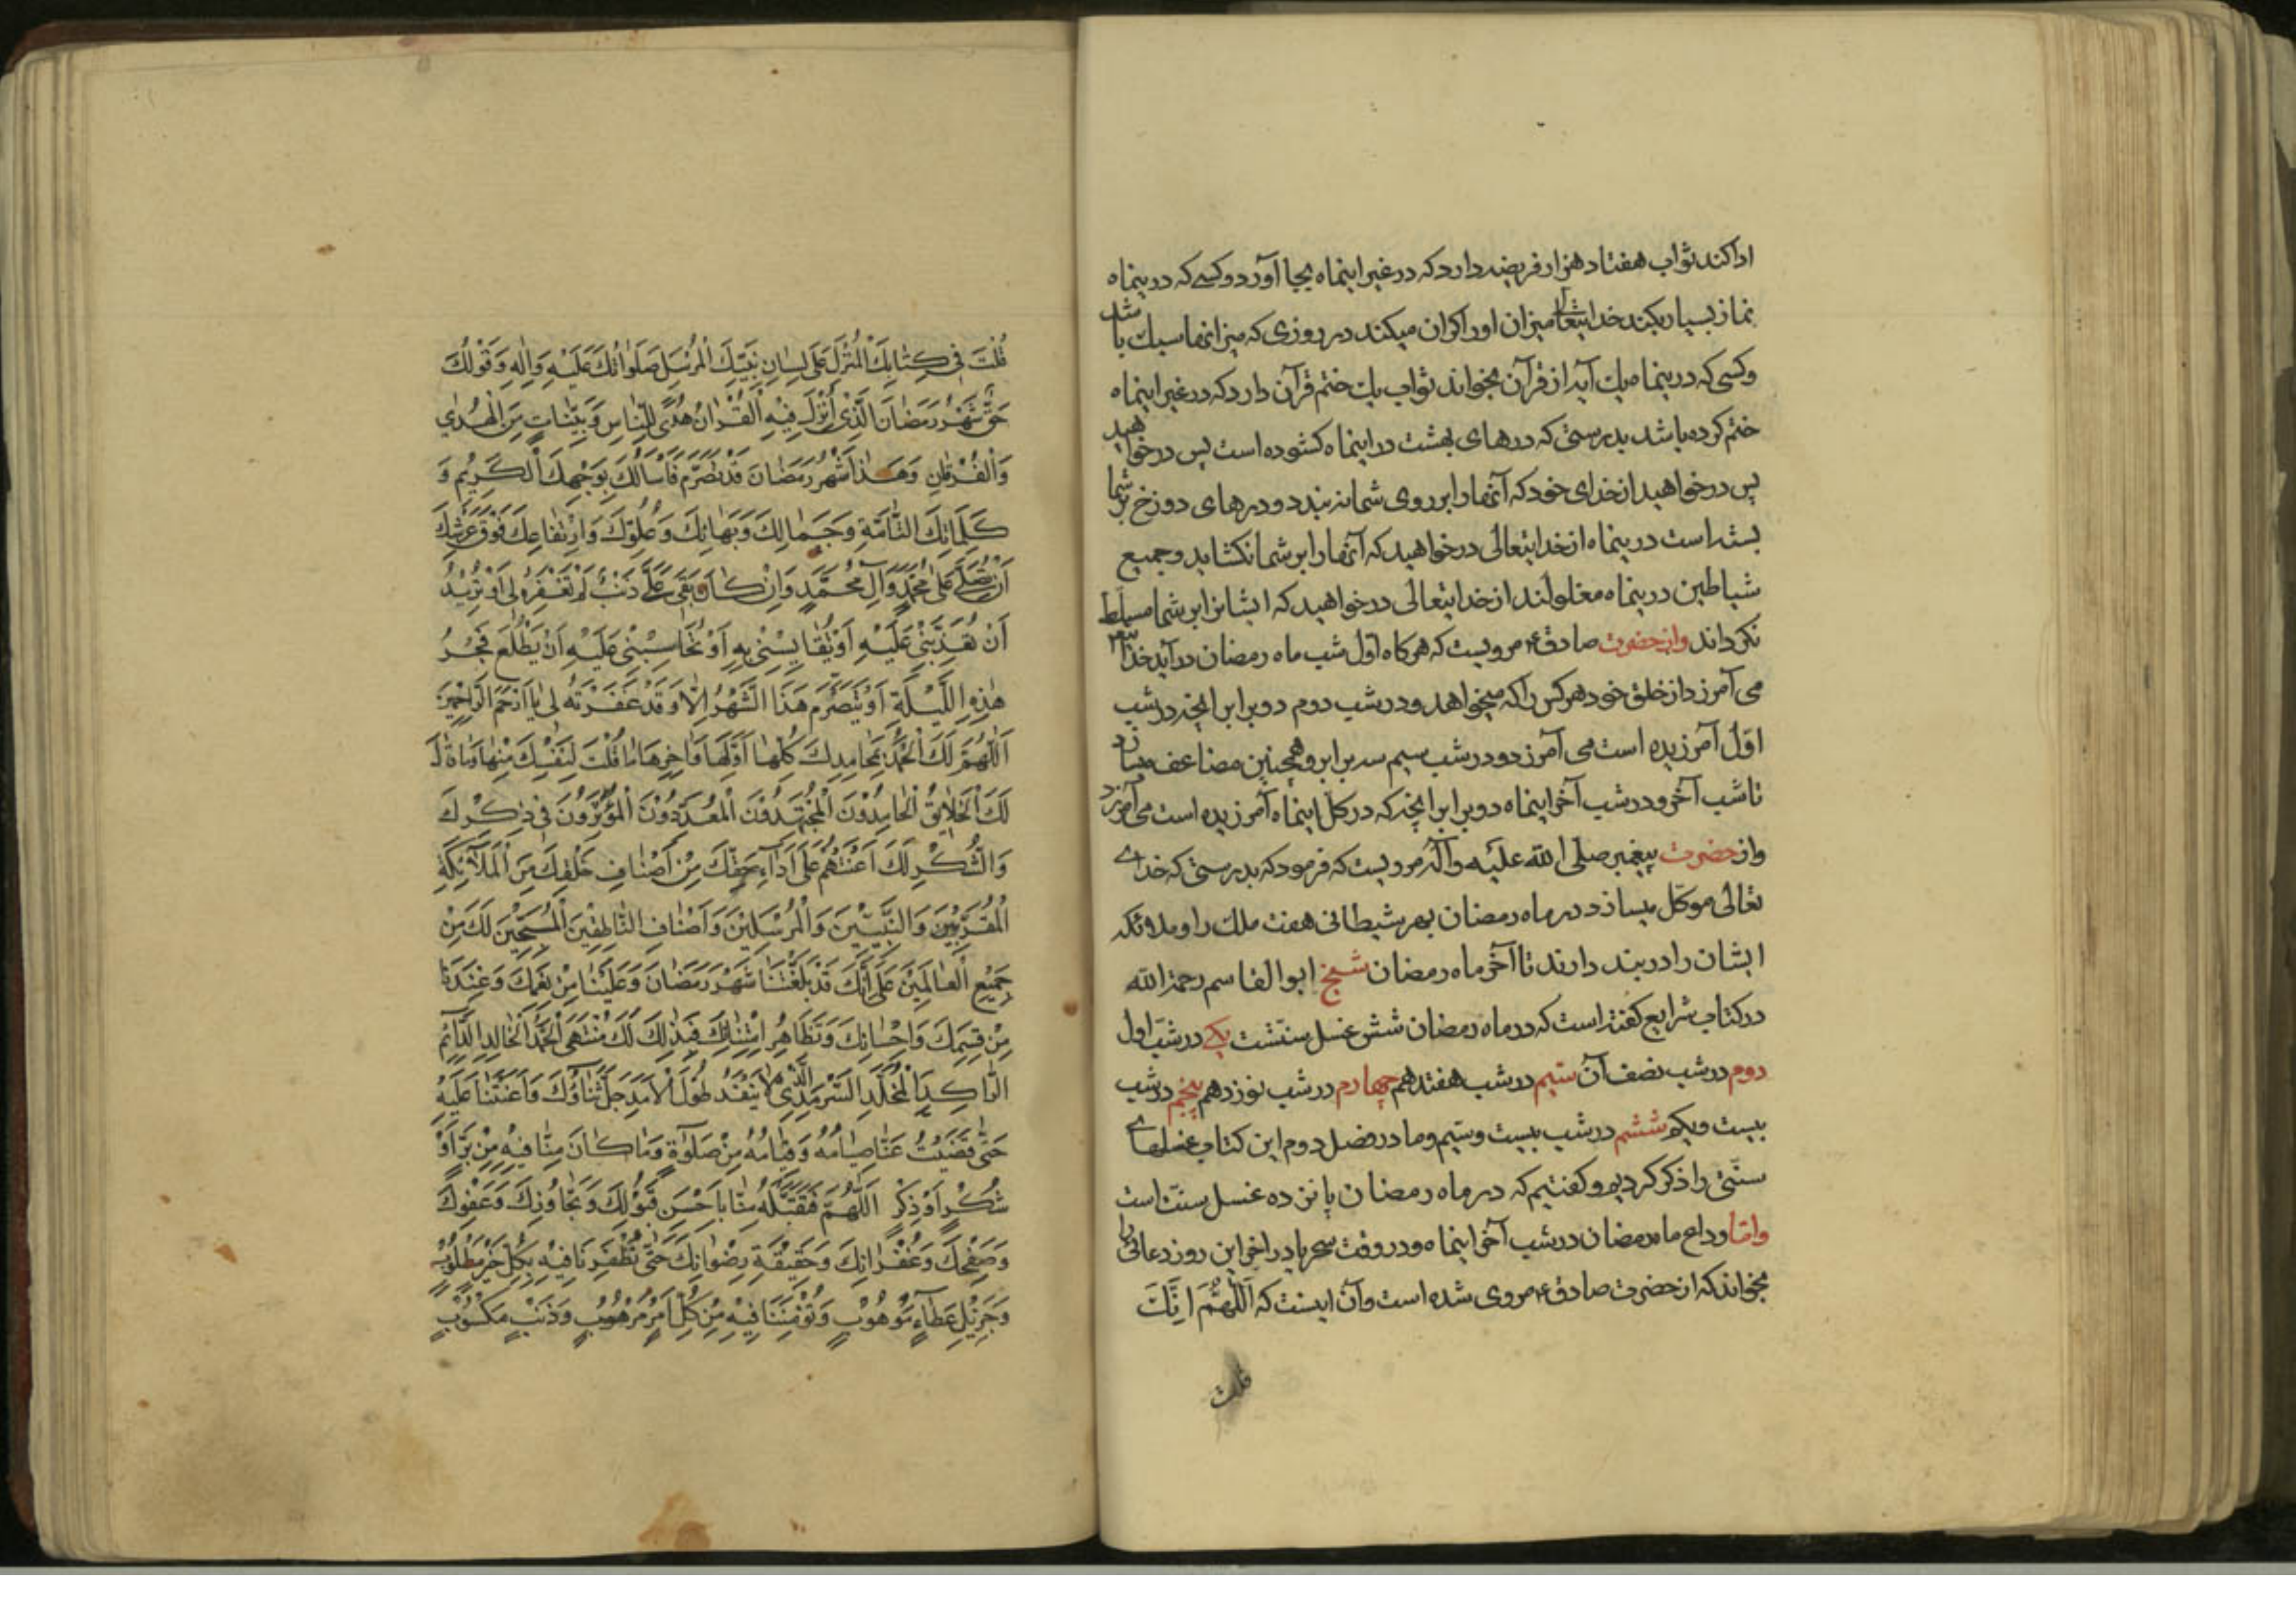 ادا کند ثواب هفتاد هزار فریضه دارد که در غیر اینماه بجا آورد و کسی که درینماه
نماز بسیار بکند خدایتعالی میزان او را کران میکند در روزی که میزانها سبک باشد
و کسی که درینماه یک آیه از قرآن بخواند ثواب یک ختم قرآن دارد که در غیر اینماه
ختم کرده باشد بدرستی که درهای بهشت در اینماه کشوده است پس درخواهید
پس درخواهید از خدای خود که آنها را بر روی شما نه بندد و درهای دوزخ بر شما
بسته است درینماه از خدایتعالی درخواهید که آنها را بر شما نکشاید و جمیع
شیاطین درینماه مغلولند از خدایتعالی درخواهید که ایشانرا بر شما مسلط
نکرداند و از حضرت صادق ع مرویست که هر کاه اول شب ماه رمضان در آید خدای
می آمرزد از خلق خود هر کس را که میخواهد و در شب دوم دو برابر انچه در شب
اول آمرزیده است می آمرزد و در شب سیم سه برابر و همچنین مضاعف میسازد
تا شب آخر و در شب آخر اینماه دو برابر انچه که در کل اینماه آمرزیده است می آمرزد
و از حضرت پیغمبر صلی الله علیه و آله مرویست که فرمود که بدرستی که خدای
تعالی موکل میسازد در ماه رمضان بهر شیطانی هفت ملک را و ملائکه
ایشان را در بند دارند تا آخر ماه رمضان شیخ ابوالقاسم رحمه الله
در کتاب شرایع کفته است که در ماه رمضان شش غسل سنتست یکی در شب اول
دوم در شب نصف آن سیم در شب هفتدهم چهارم در شب نوزدهم پنجم در شب
بیست و یکم ششم در شب بیست و سیم و ما در فصل دوم این کتاب غسلهای
سنتی را ذکر کردیم و کفتیم که در ماه رمضان پانزده غسل سنت است
و اما وداع ماه رمضان در شب آخر اینماه و در وقت سحر یا در آخر این روز دعائی را
بخواند که از حضرت صادق ع مروی شده است و آن اینست که اَللّهُمَّ اِنَّكَ
قلت
قُلْتَ فِى كِتٰابِكَ الْمُنْزَلِ عَلىٰ لِسٰانِ نَبِيِّكَ الْمُرْسَلِ صَلَوٰاتُكَ عَلَيْهِ وَاٰلِهِ وَقَوْلُكَ
حَقٌّ شَهْرُ رَمَضٰانَ الَّذِى اُنْزِلَ فِيهِ الْقُرْاٰنُ هُدًى لِلنّٰاسِ وَبَيِّنٰاتٍ مِنَ الْهُدٰى
وَالْفُرْقٰانِ وَهٰذٰا شَهْرُ رَمَضٰانَ قَدْ تَصَرَّمَ فَاَسْاَلُكَ بِوَجْهِكَ الْكَرِيمِ وَ
كَلِمٰاتِكَ التّٰامَّةِ وَجَمٰالِكَ وَبَهٰائِكَ وَعُلُوِّكَ وَارْتِفٰاعِكَ فَوْقَ عَرْشِكَ
اَنْ تُصَلِّىَ عَلىٰ مُحَمَّدٍ وَاٰلِ مُحَمَّدٍ وَاِنْ كٰانَ بَقِىَ عَلَىَّ ذَنْبٌ لَمْ تَغْفِرْهُ لِى اَوْ تُرِيدُ
اَنْ تُعَذِّبَنِى عَلَيْهِ اَوْ تُقٰايِسْنِى بِهِ اَوْ تُحٰاسِبْنِى عَلَيْهِ اَنْ يَطْلُعَ فَجْرُ
هٰذِهِ اللَّيْلَةِ اَوْ يَتَصَرَّمَ هٰذَا الشَّهْرُ اِلّٰا وَقَدْ غَفَرْتَهُ لِى يٰا اَرْحَمَ الرّٰاحِمِينَ
اَللّٰهُمَّ لَكَ الْحَمْدُ بِمَحٰامِدِكَ كُلِّهٰا اَوَّلِهٰا وَاٰخِرِهٰا مٰا قُلْتَ لِنَفْسِكَ مِنْهٰا وَمٰا قٰالَ
لَكَ الْخَلٰايِقُ الْحٰامِدُونَ الْمُجْتَهِدُونَ الْمُعَدِّدُونَ الْمُؤْثِرُونَ فِى ذِكْرِكَ
وَالشُّكْرِ لَكَ اَعَنْتَهُمْ عَلىٰ اَدٰاءِ حَقِّكَ مِنْ اَصْنٰافِ خَلْقِكَ مِنَ الْمَلٰائِكَةِ
الْمُقَرَّبِينَ وَالنَّبِيِّينَ وَالْمُرْسَلِينَ وَاَصْنٰافِ النّٰاطِقِينَ الْمُسَبِّحِينَ لَكَ مِنْ
جَمِيعِ الْعٰالَمِينَ عَلىٰ اَنَّكَ قَدْ بَلَّغْتَنٰا شَهْرَ رَمَضٰانَ وَعَلَيْنٰا مِنْ نِعَمِكَ وَعِنْدَنٰا
مِنْ قِسَمِكَ وَاِحْسٰانِكَ وَتَظٰاهُرِ امْتِنٰانِكَ فَبِذٰلِكَ لَكَ مُنْتَهَى الْحَمْدِ الْخٰالِدِ الدّٰائِمِ
الرّٰاكِدِ الْمُخَلَّدِ السَّرْمَدِ الَّذِى لٰا يَنْفَدُ طُولَ الْاَمَدِ جَلَّ ثَنٰاؤُكَ وَاَعَنْتَنٰا عَلَيْهِ
حَتّٰى قَضَيْتَ عَنّٰا صِيٰامَهُ وَقِيٰامَهُ مِنْ صَلٰوةٍ وَمٰا كٰانَ مِنّٰا فِيهِ مِنْ بِرٍّ اَوْ
شُكْرٍ اَوْ ذِكْرٍ اَللّٰهُمَّ فَتَقَبَّلْهُ مِنّٰا بِاَحْسَنِ قَبُولِكَ وَتَجٰاوُزِكَ وَعَفْوِكَ
وَصَفْحِكَ وَغُفْرٰانِكَ وَحَقِيقَةِ رِضْوٰانِكَ حَتّٰى تُظْفِرَنٰا فِيهِ بِكُلِّ خَيْرٍ مَطْلُوبٍ
وَجَزِيلِ عَطٰاءٍ مَوْهُوبٍ وَتُؤْمِنَنٰا فِيهِ مِنْ كُلِّ اَمْرٍ مَرْهُوبٍ وَذَنْبٍ مَكْسُوبٍ